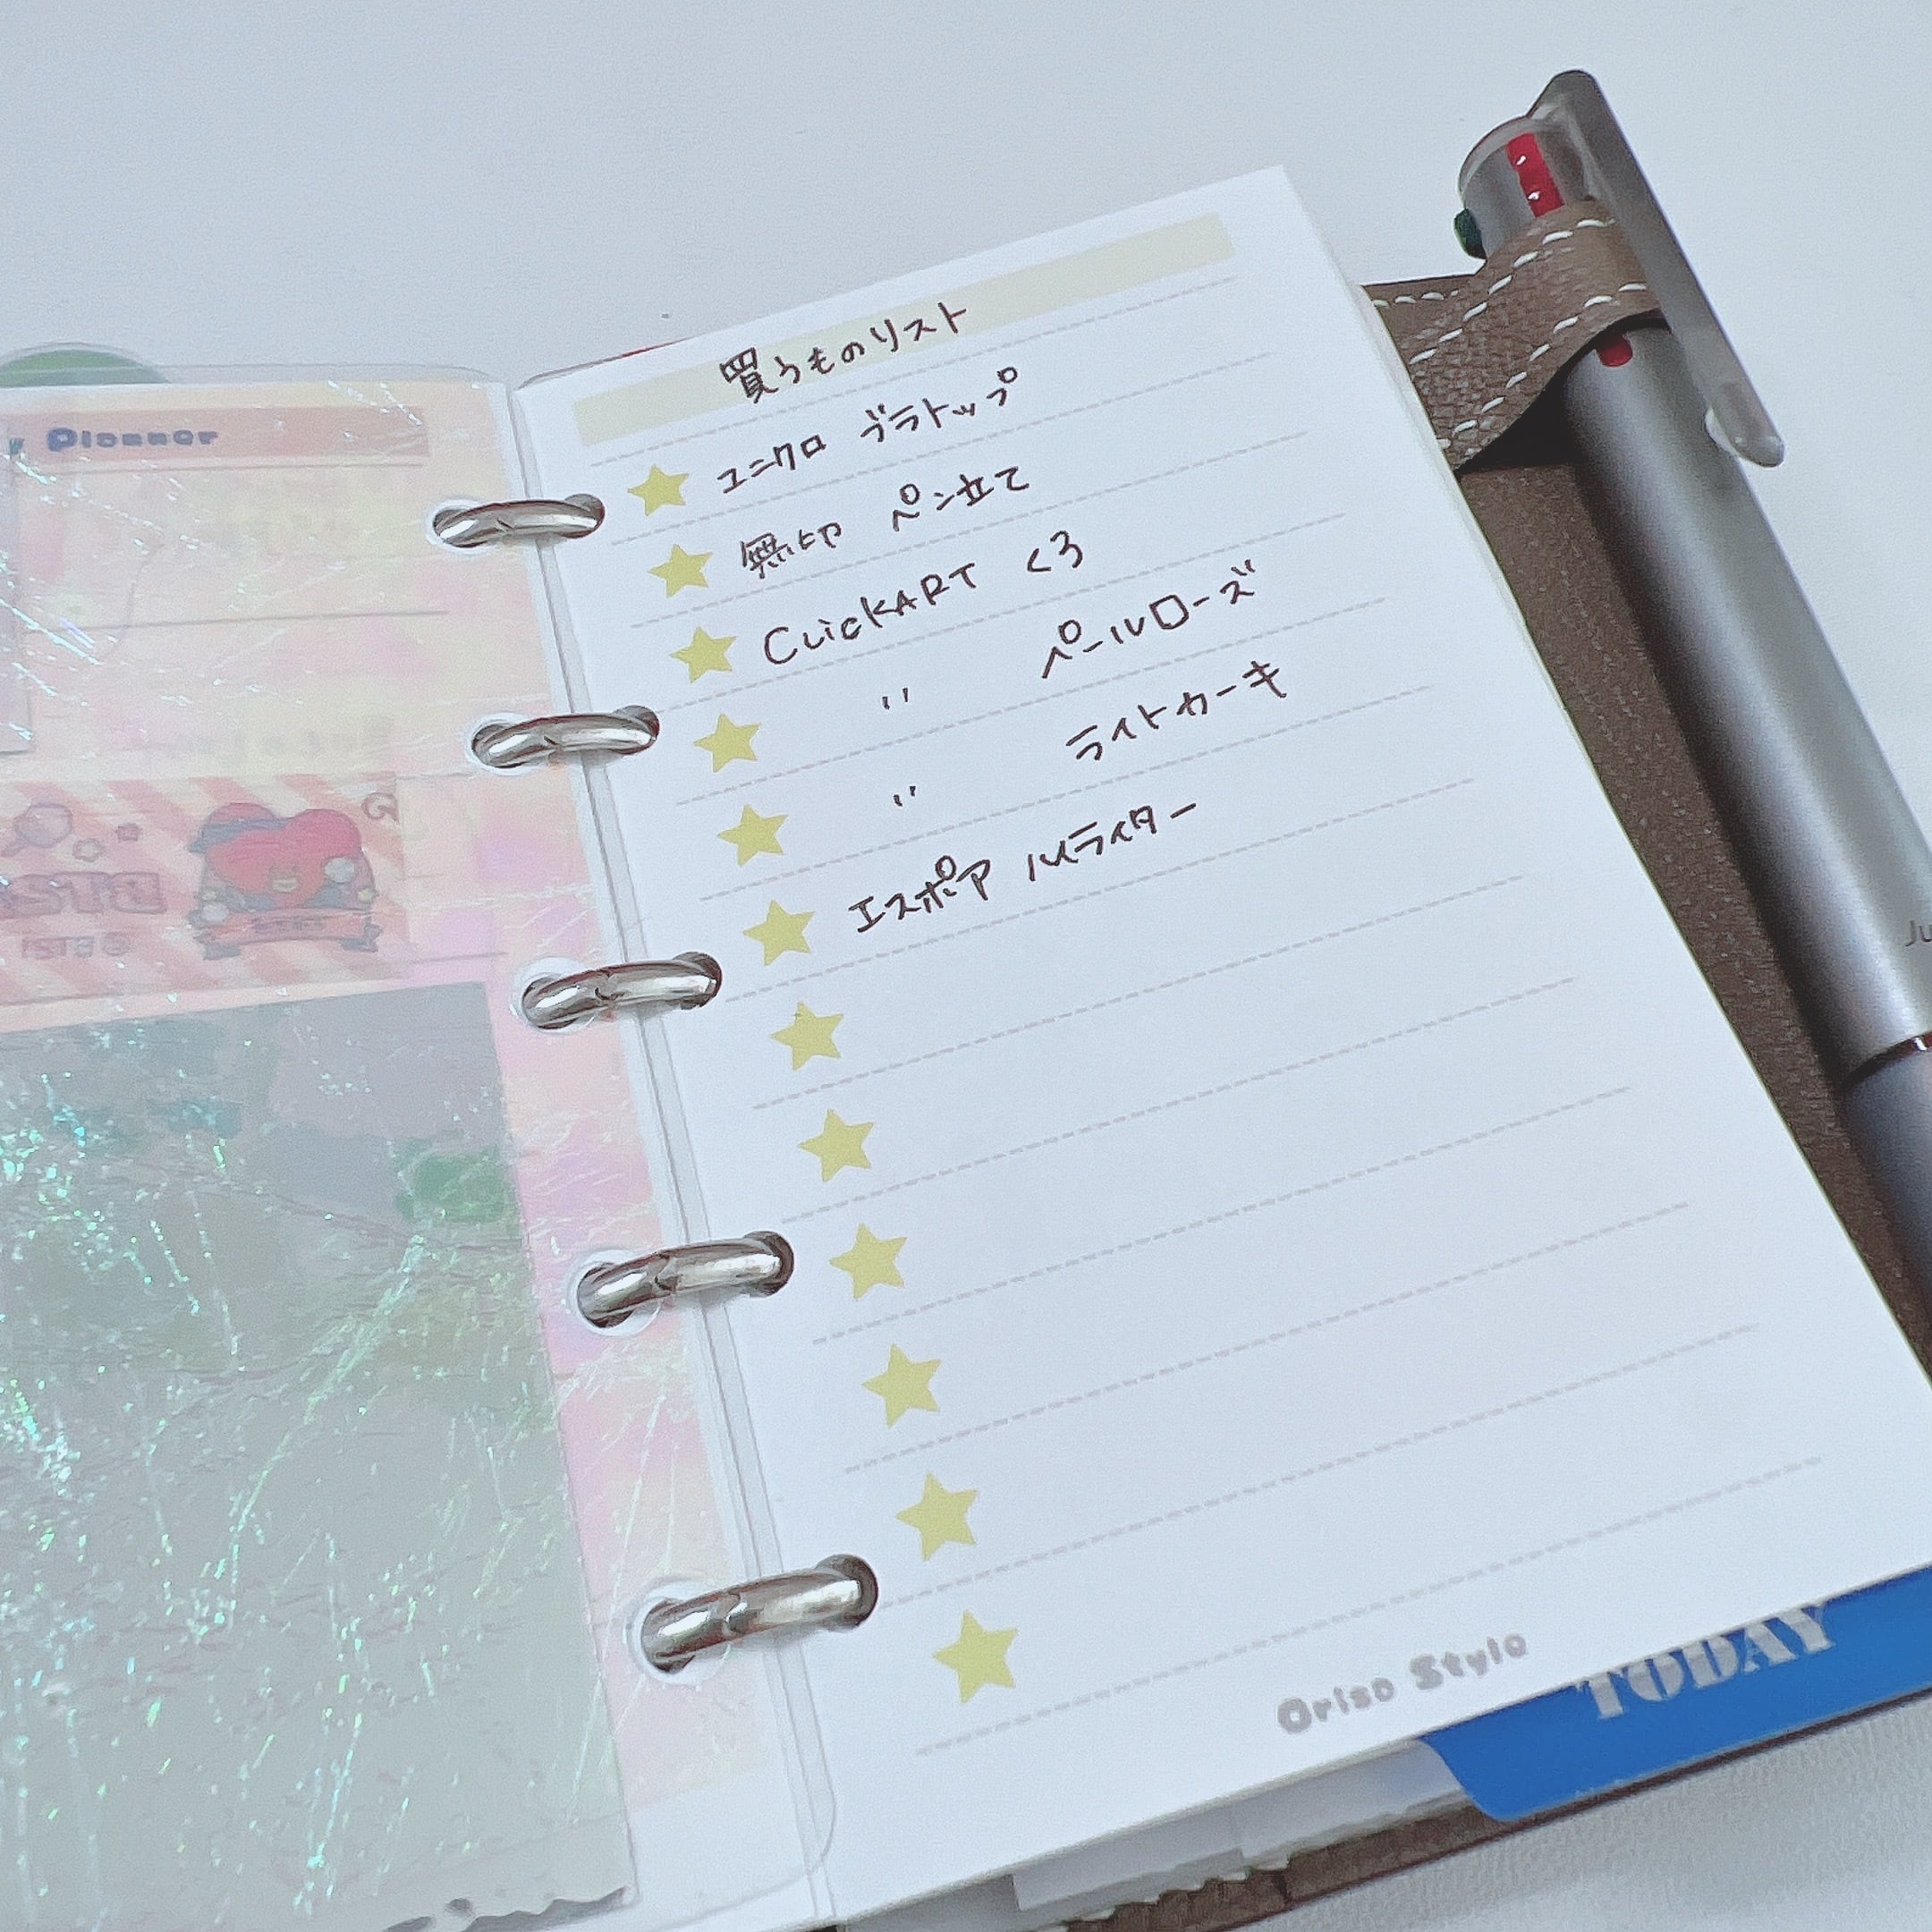 Planner
買うものリスト
ユニクロ ブラトップ
無印 ペン立て
CLiCKART くろ
〃 ペールローズ
〃 ライトカーキ
エスポア ハイライター
Oriso Style
TODAY
Ju